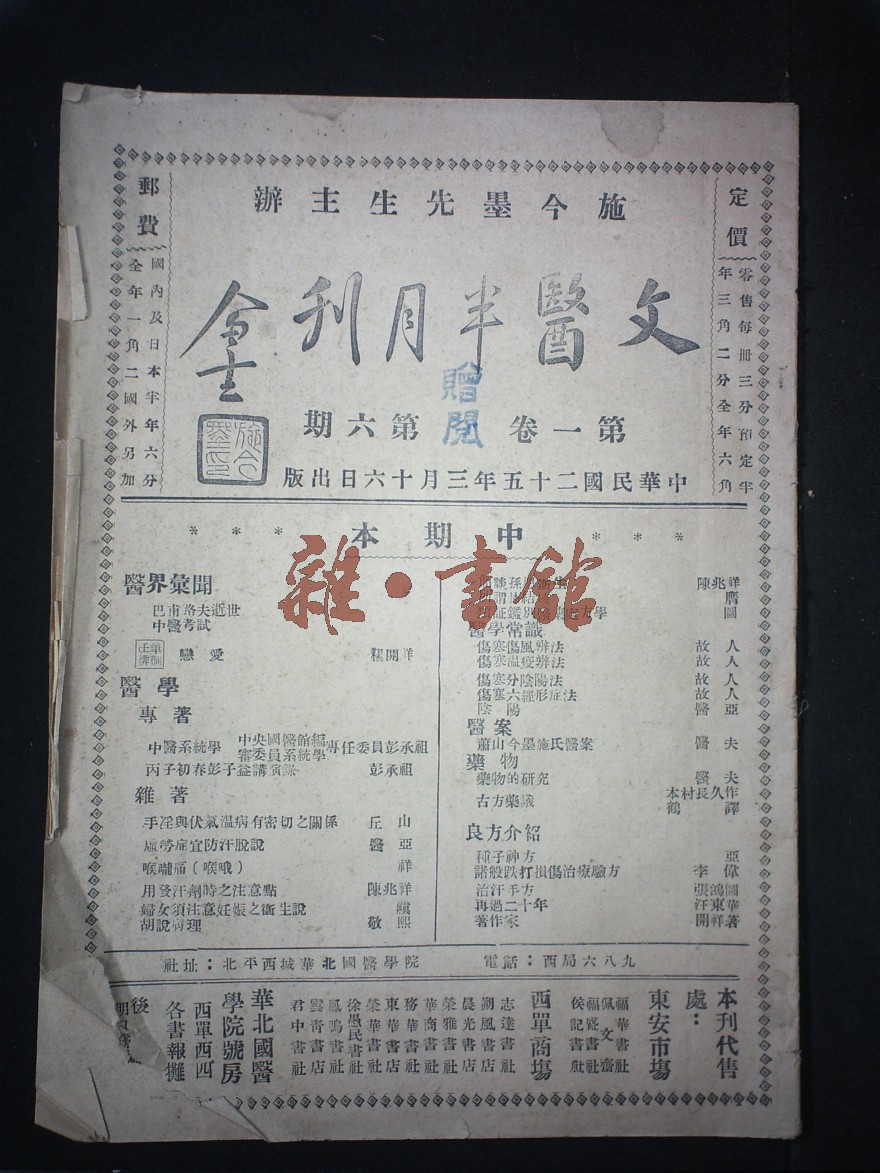 施今墨先生主辦
文醫半月刊
今墨
第一卷第六期
贈閱
施今墨印
中華民國二十五年三月十六日出版
定價
零售每冊三分預定半
年三角二分全年六角
郵費
國內及日本半年六分
全年一角二國外另加
本期中
雜·書館
醫界彙聞
巴甫洛夫逝世
中醫考試
戀愛 開祥
醫學
專著
中醫系統學 中央國醫館編審委員系統學專任委員彭承祖
丙子初春彭子益講演錄 彭承祖
雜著
手淫與伏氣溫病有密切之關係 丘山
虛勞症宜防汗脫說 醫亞
喉嚨痛(喉哦) 祥
用發汗劑時之注意點 陳兆祥
婦女須注意妊娠之衛生說
胡說病理 敬熙
陳兆祥
膺
圖
醫學常識
傷寒傷風辨法 故人
傷寒溫疫辨法 故人
傷寒分陰陽法 故人
傷寒六經形症法 故人
陰陽 醫亞
醫案
蕭山今墨施氏醫案 醫夫
藥物
藥物的研究 醫夫
古方藥議 木村長久作
鶴譯
良方介紹
種子神方 亞
諸般跌打損傷治療驗方 李偉
治汗手方 張鴻圖
再過二十年 汪東華
著作家 開祥著
社址：北平西城華北國醫學院
電話：西局六八九
本刊代售
處：
東安市場
福華書社
佩文齋
福瓷書社
侯記書社
西單商場
志達書社
朔風書店
晨光書店
榮雅書社
華商書社
務華書社
東華書社
榮華書社
徐愚民書社
鳳鳴書社
雲青書店
君中書社
華北國醫
學院號房
西單西四
各書報攤
後